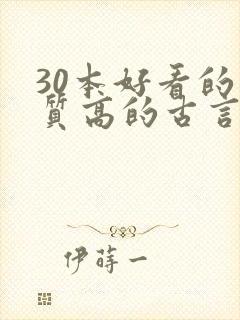 30本好看的
质高的古言
伊莳一